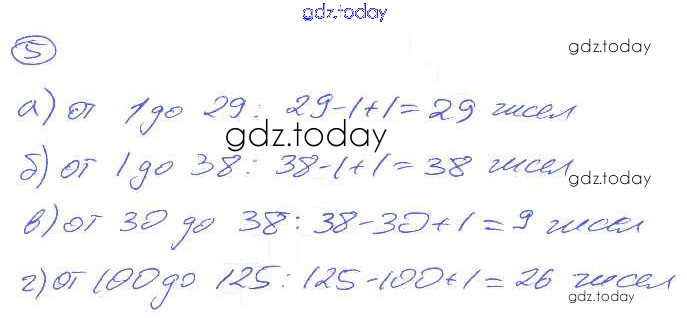 gdz.today
5
gdz.today
а) от 1 до 29: 29-1+1=29 чисел
gdz.today
б) от 1 до 38: 38-1+1=38 чисел
gdz.today
в) от 30 до 38: 38-30+1=9 чисел
г) от 100 до 125: 125-100+1=26 чисел
gdz.today